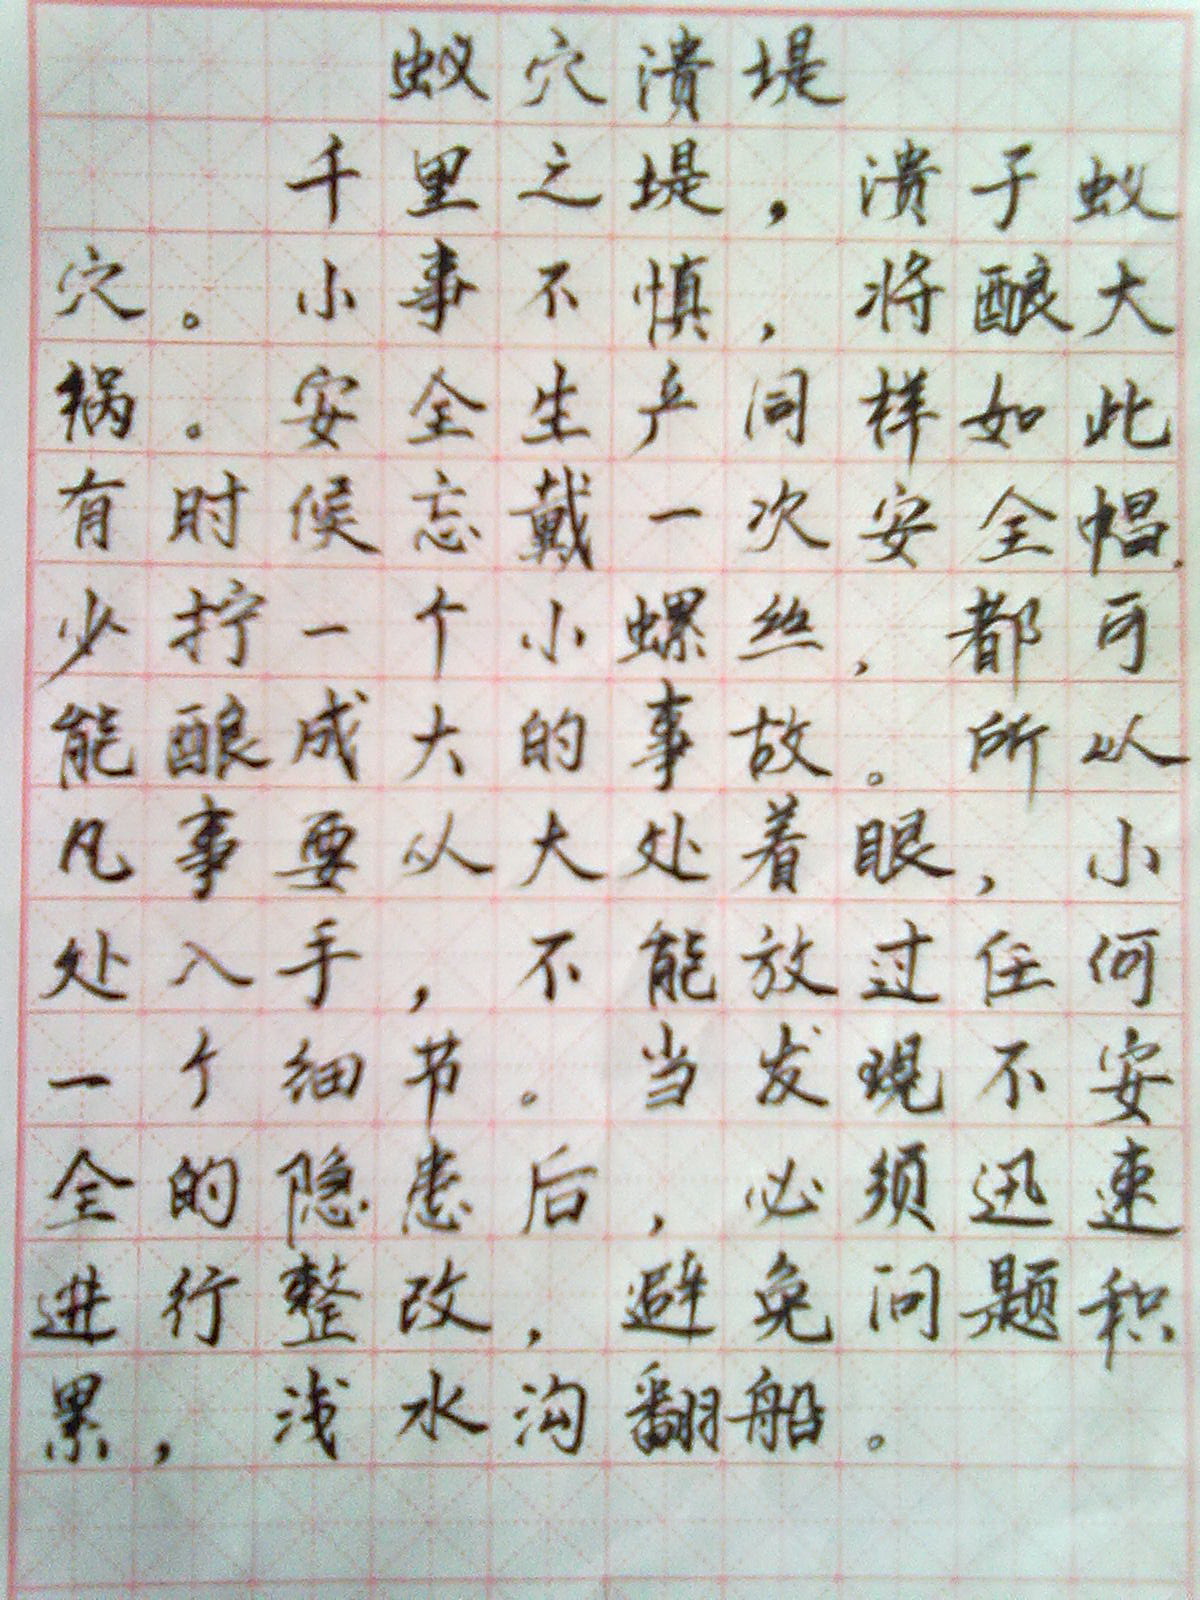 蚁穴溃堤
千里之堤，溃于蚁
穴。小事不慎，将酿大
祸。安全生产同样如此
有时候忘戴一次安全帽，
少拧一个小螺丝，都可
能酿成大的事故。所以
凡事要从大处着眼，小
处入手，不能放过任何
一个细节。当发现不安
全的隐患后，必须迅速
进行整改，避免问题积
累，浅水沟翻船。